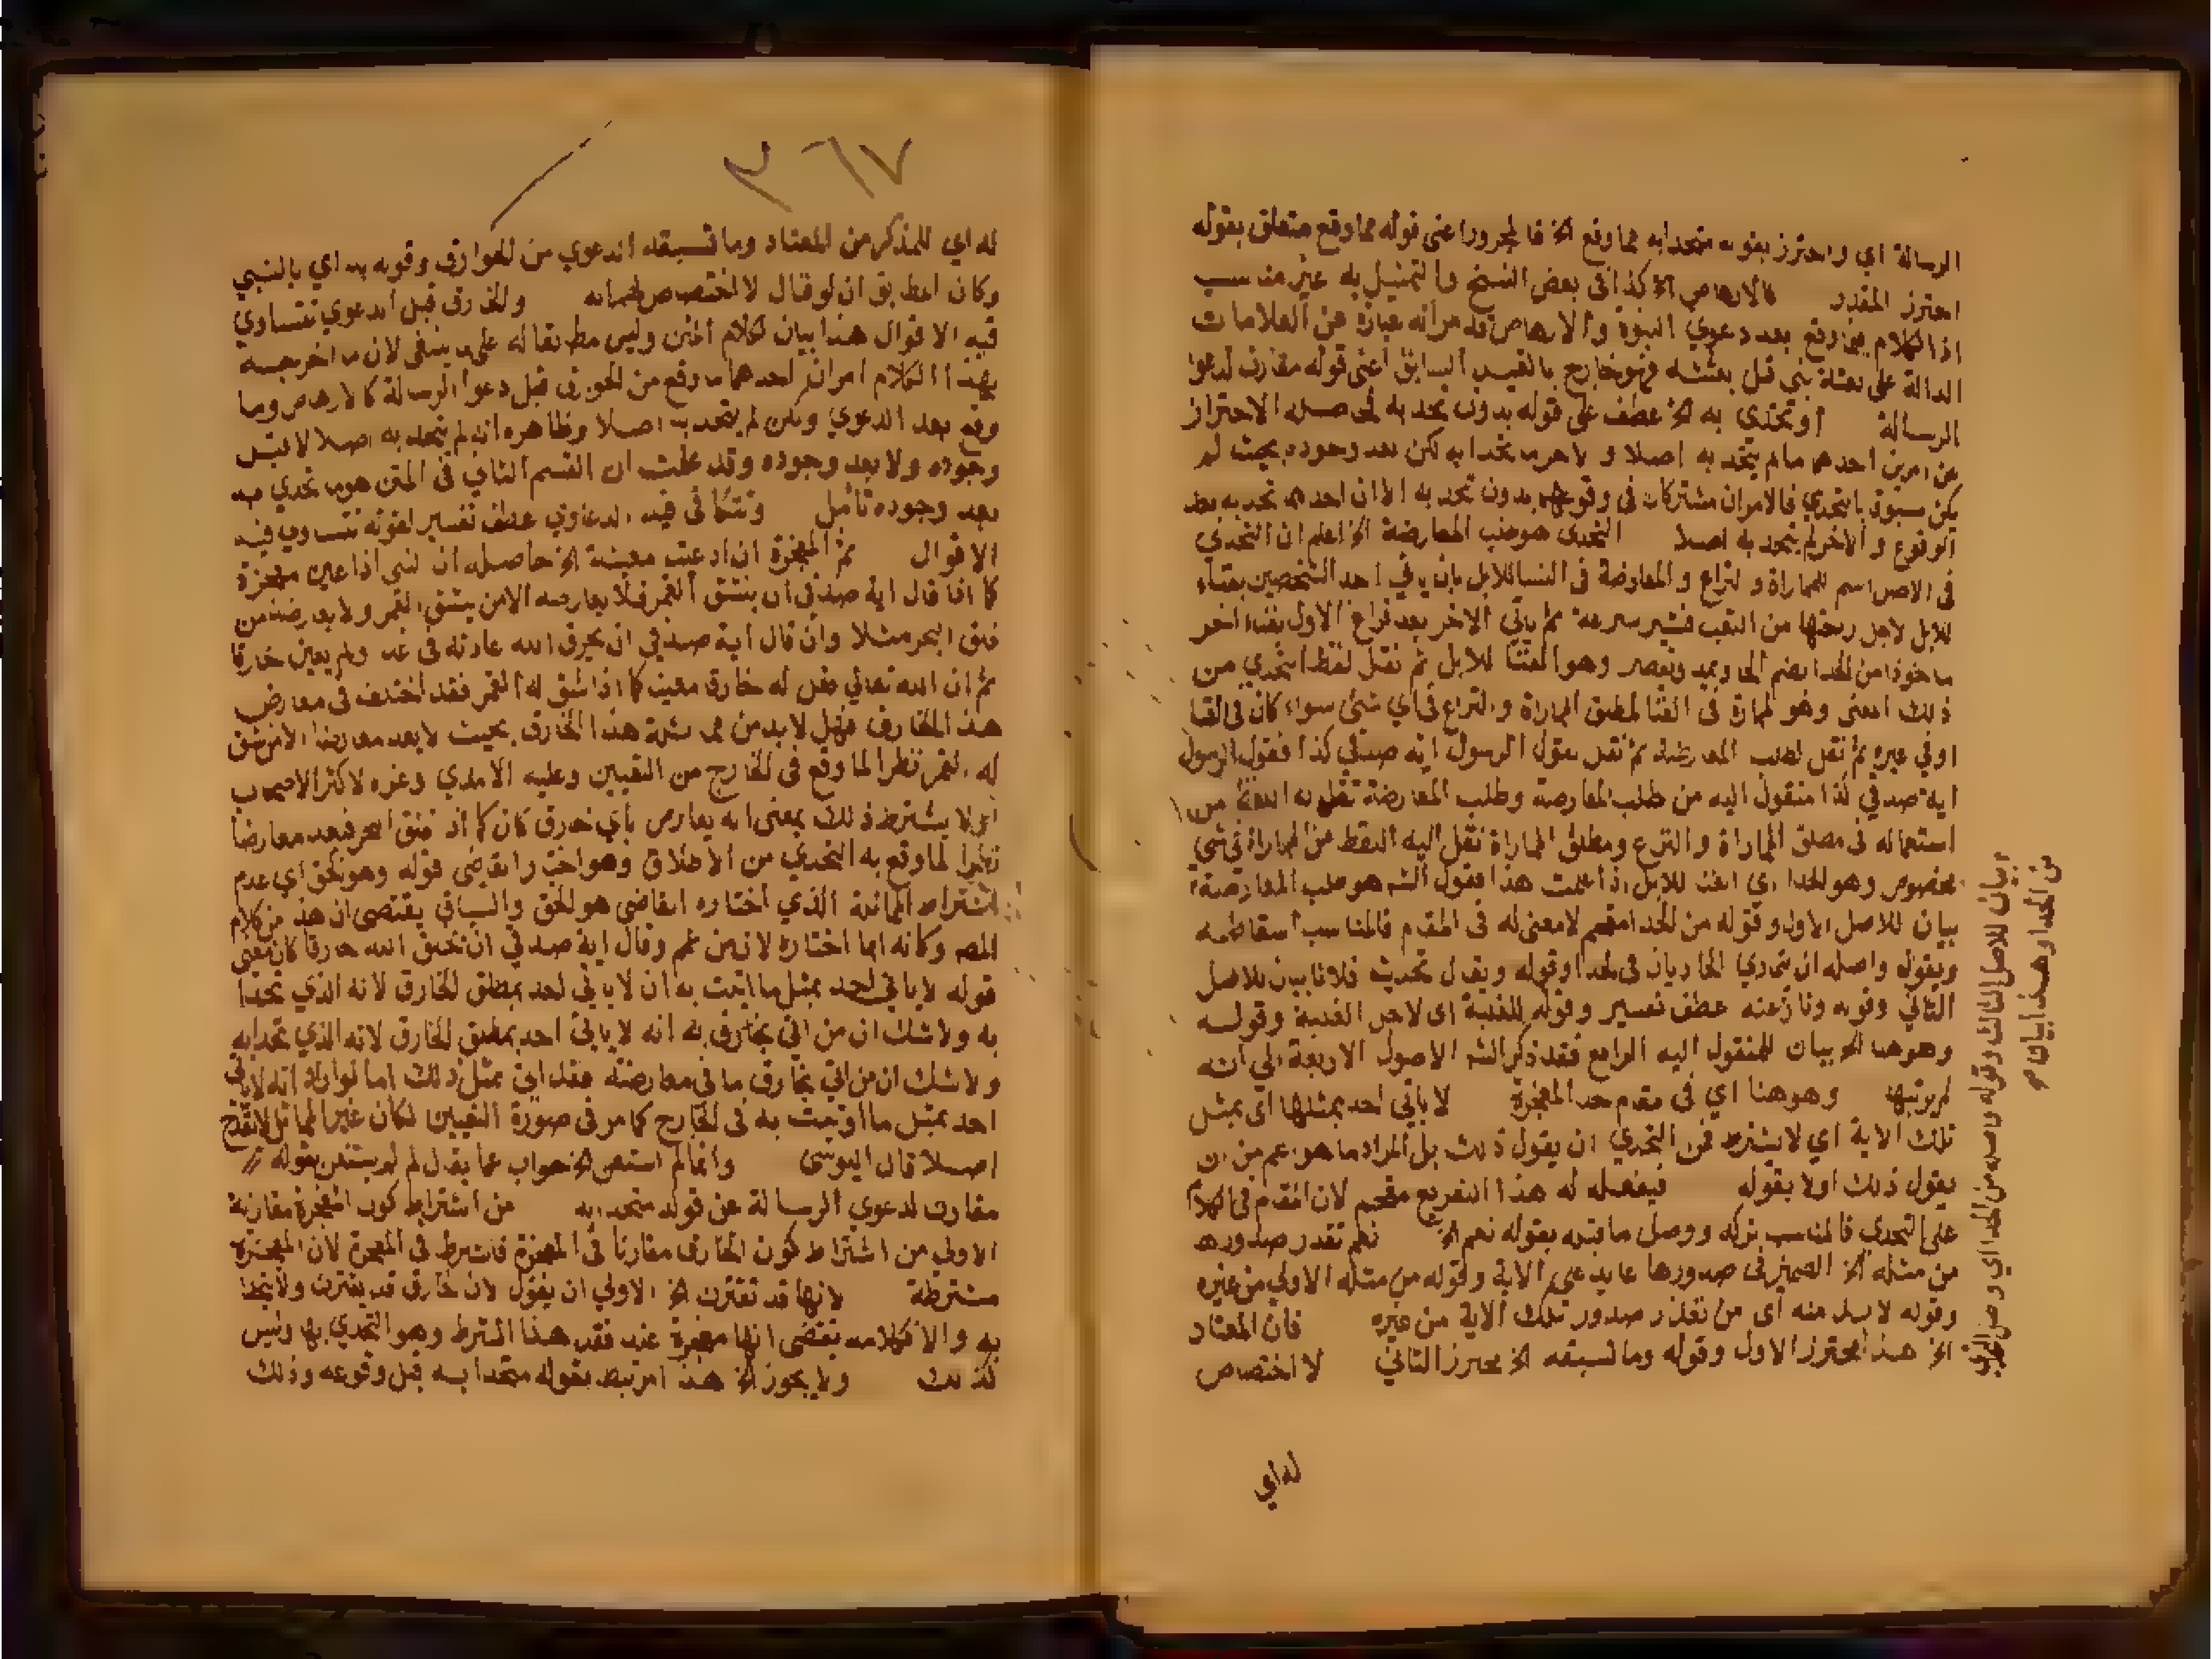 الرسالة اي واحترز بقوله متحدا به مما وقع الخ فالمجرور اعني قوله مما وقع متعلق بقوله
احترز المقدر كالارهاص الخ كذا في بعض النسخ والتمثيل به غير مناسب
اذ الكلام فيما وقع بعد دعوي النبوة والارهاص قد مر انه عبارة عن العلامات
الدالة على بعثة نبي قبل بعثته فهو خارج بالقيد السابق اعني قوله مقارن لدعوا
الرسالة او تحدي به الخ عطف على قوله بدون تحد به فحاصله الاحتراز
عن امرين احدهما ما لم يتحد به اصلا والاخر ما تحدا به لكن بعد وجوده بحيث لم
يكن مسبوقا بالتحدي فالامران مشتركان في وقوعهما بدون تحد به الا ان احدهما تحد به بعد
الوقوع والاخر لم يتحد به اصلا التحدي هو طلب المعارضة الخ اعلم ان التحدي
في الاصل اسم للمماراة والنزاع والمعارضة في الغنا للابل بان ياتي احد الشخصين بغناء
للابل لاجل ريحتها من التعب فتسير بسرعة ثم ياتي الاخر بعد فراغ الاول بغناء اخر
ماخوذا من الحدا بضم الحا ويمد ويقصر وهو الغنا للابل ثم نقل لفظ التحدي من
ذلك المعنى وهو المماراة في الغنا لمطلق المماراة والنزاع في اي شئ سواء كان في الغنا
او في غيره ثم نقل لطلب المعارضة ثم نقل لقول الرسول اية صدقي كذا فقول الرسول
اية صدقي كذا منقول اليه من طلب المعارضة وطلب المعارضة نقل له اللفظ من
استعماله في مطلق المماراة والنزاع ومطلق المماراة نقل اليه اللفظ من المماراة في شئ
مخصوص وهو الحدا اي الغنا للابل اذا علمت هذا فقول الشه هو طلب المعارضة
بيان للاصل الاول وقوله من الحدا مقحم لا معنى له في المقام فالمناسب اسقاطه
ويقول واصله ان يتماري الحاديان في الحدا وقوله ويقال تحديت فلانا بيان للاصل
الثاني وقوله ونازعته عطف تفسير وقوله للغلبة اي لاجل الغلبة وقوله
وهو هنا الخ بيان للمنقول اليه الرابع فقد ذكر الشه الاصول الاربعة الي انه
لم يرتبها وهو هنا اي في مقام حد المعجزة لا ياتي احد بمثلها اي بمثل
تلك الاية اي لا يشترط في التحدي ان يقول ذلك بل المراد ما هو اعم من ان
يقول ذلك اولا بقوله فيفعله له هذا التفريع مقحم لان المقدم في الكلام
على التحدي فالمناسب تركه ووصل ما قبله بقوله نعم الخ نعم تقدر صدورها
من مثله الخ الضمير في صدورها عايد على الاية وقوله من مثله الاولي من غيره
وقوله لا بد منه اي من تعذر صدور تلك الاية من غيره فان المعتاد
الخ هذا محترز الاول وقوله وما تسبقه الخ محترز الثاني لا اختصاص
له اي
بيان للاصل الثالث وقوله واصله من الحدا اي واصل
من الحدا وهذا بيان
٣٦٧
له اي للمذكر من المعتاد وما تسبقه الدعوي من الخوارق وقوله به اي بالنبي
وكان المطابق ان لو قال لا اختصاص لهما به والخارق قبل الدعوي تتساوي
فيه الاقوال هذا بيان لكلام المتن وليس مطابقا له على ما ينبغي لان ما اخرجه
بهذا الكلام امران احدهما ما وقع من الخوارق قبل دعوا الرسالة كالارهاص وما
وقع بعد الدعوي ولكن لم يتحد به اصلا وظاهره انه لم يتحد به اصلا لا قبل
وجوده ولا بعد وجوده وقد علمت ان القسم الثاني في المتن هو ما تحدي به
بعد وجوده تامل وتتكافي فيه الدعاوي عطف تفسير لقوله تتساوي فيه
الاقوال ثم المعجزة ان ادعيت معينة الخ حاصله ان النبي اذا عين معجزة
كما اذا قال اية صدقي ان ينشق القمر فلا يعارضه الا من يشق القمر ولا يعارضه من
فلق البحر مثلا وان قال اية صدقي ان يخرق الله عادته في غد ولم يعين خارقا
ثم ان الله تعالي فعل له خارق معين كما اذا شق له القمر فقد اختلف في معارض
هذا الخارق فهل لا بد من مماثلة هذا الخارق بحيث لا يعد معارضا الا من شق
له القمر نظرا لما وقع في الخارج من التعيين وعليه الامدي وعزه لاكثر الاصحاب
او لا يشترط ذلك بمعنى انه يعارض باي خارق كان كما اذا فلق البحر فيعد معارضا
نظرا لما وقع به التحدي من الاطلاق وهو اختيار القاضي قوله وهو الحق اي عدم
اشتراط المماثلة الذي اختاره القاضي هو الحق والسياق يقتضي ان هذا من كلام
المصه وكانه انما اختاره لان من لم وقال اية صدقي ان يخلق الله خارقا كان معنى
قوله لا ياتي احد بمثل ما اتيت به ان لا ياتي احد بمطلق الخارق لانه الذي تحدا
به ولا شك ان من اتي بخارق به انه لا ياتي احد بمطلق الخارق لانه الذي تحدا به
ولا شك ان من اتي بخارق ما في معارضته فقد اتي بمثل ذلك اما لو اراد انه لا ياتي
احد بمثل ما اوتيت به في الخارج كما مر في صورة التعيين لكان غير المماثل لا يقدح
اصلا قال اليوسي وانما لم استغن الخ جواب عما يقال لم لم يستغن بقوله
مقارن لدعوي الرسالة عن قوله متحدا به من اشتراط كون المعجزة مقارنة
الاولي من اشتراط كون الخارق مقارنا في المعجزة فاشرط في المعجزة لان المعجزة
مشترطة لانها قد تقترن الخ الاولي ان يقول لان الخارق قد يقترن ولا يتحدا
به والا فكلامه يقتضي انها معجزة عند فقد هذا الشرط وهو التحدي بها وليس
كذلك ولا يجوز الخ هذا مرتبط بقوله متحدا به قبل وقوعه وذلك